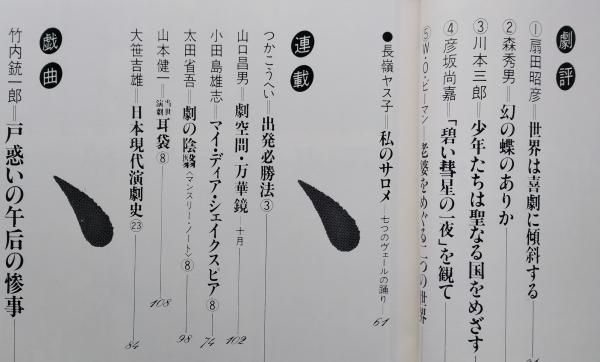 劇評
①扇田昭彦＝世界は喜劇に傾斜する
②森秀男＝幻の蝶のありか
③川本三郎＝少年たちは聖なる国をめざす
④彦坂尚嘉＝「碧い彗星の一夜」を観て
⑤W・O・ビーマン＝老婆をめぐる二つの世界
●長嶺ヤス子＝私のサロメ―七つのヴェールの踊り 61
連載
つかこうへい＝出発必勝法③
山口昌男＝劇空間・万華鏡 十月 102
小田島雄志＝マイ・ディア・シェイクスピア⑧ 74
太田省吾＝劇の陰翳〈マンスリー・ノート〉⑧ 98
山本健一＝当世演劇耳袋⑧ 108
大笹吉雄＝日本現代演劇史㉓ 84
戯曲
竹内銃一郎＝戸惑いの午后の惨事